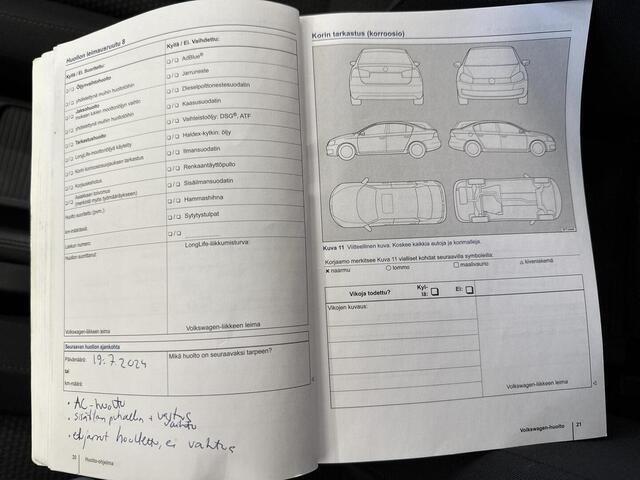 Huollon leimausruutu 8
Kyllä / Ei. Suoritettu:
Kyllä / Ei. Vaihdettu:
❏ / ❏ Öljynvaihtohuolto
❏ / ❏ AdBlue®
❏ / ❏ yhdistettynä muihin huoltotöihin
❏ / ❏ Jarruneste
❏ / ❏ Jaksohuolto
mukaan lukien moottoriöljyn vaihto
❏ / ❏ Dieselpolttonestesuodatin
❏ / ❏ yhdistettynä muihin huoltotöihin
❏ / ❏ Kaasusuodatin
❏ / ❏ Tarkastushuolto
❏ / ❏ Vaihteistoöljy: DSG®, ATF
❏ / ❏ LongLife-moottoriöljyä käytetty
❏ / ❏ Haldex-kytkin: öljy
❏ / ❏ Korin korroosiosuojauksen tarkastus
❏ / ❏ Ilmansuodatin
❏ / ❏ Korjauskehotus
❏ / ❏ Renkaantäyttöpullo
❏ / ❏ Asiakkaan toivomus
(merkitse myös työmääräykseen)
❏ / ❏ Sisäilmansuodatin
Huolto suoritettu (pvm.):
❏ / ❏ Hammashihna
km-määrässä:
❏ / ❏ Sytytystulpat
❏ / ❏
Laskun numero:
LongLife-huoltumisturva:
Huollon suorittanut:
Volkswagen-liikkeen leima
Volkswagen-liikkeen leima
Seuraavan huollon ajankohta
Päivämäärä: 19.7.2024
Mikä huolto on seuraavaksi tarpeen?
tai
km-määrä:
• AC-huolto
• ohjannut huolettu, ei vaihtus
20 Huolto-ohjelma
Korin tarkastus (korroosio)
Kuva 11 Viitteellinen kuva. Koskee kaikkia autoja ja korimalleja.
Korjaamo merkitsee Kuva 11 vialliset kohdat seuraavilla symboleilla:
✖ naarmu ○ lommo □ maalivaurio △ kiveniskemä
Vikoja todettu? Kyl-
lä: ❏ Ei: ❏
Vikojen kuvaus:
Volkswagen-liikkeen leima
Volkswagen-huolto 21